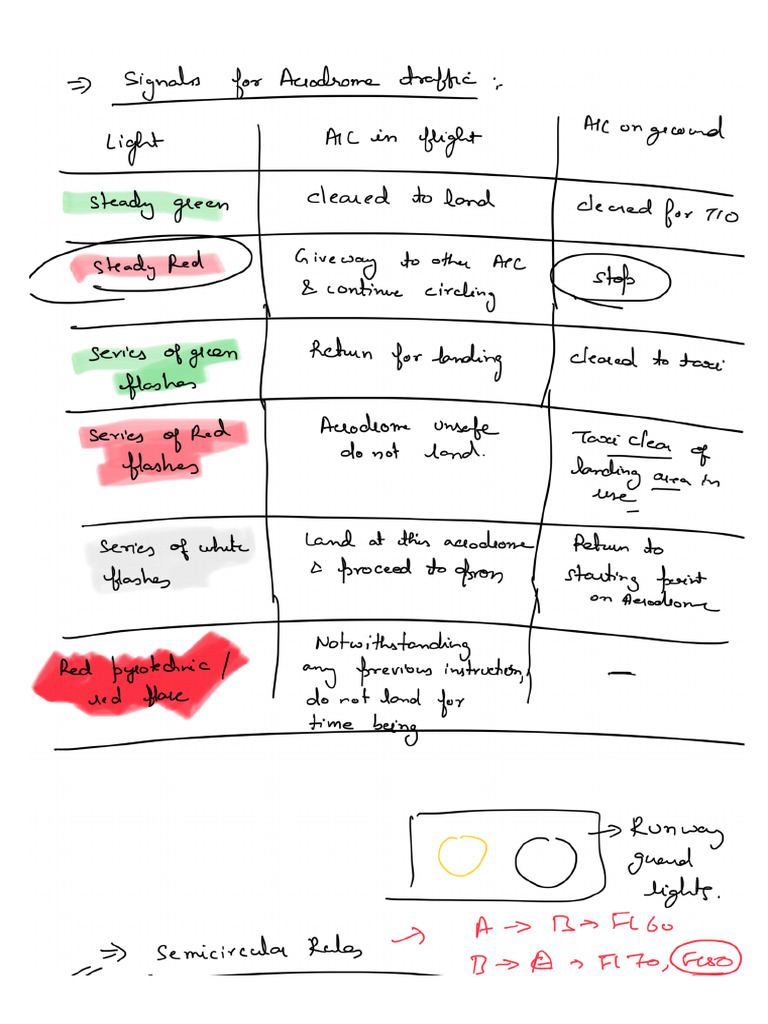 ⇒ Signals for Aerodrome traffic :.
Light
A/C in flight
A/C on ground
Steady green
cleared to land
cleared for T/O
Steady Red
Give way to other A/C
& continue circling
Stop
Series of green
flashes
Return for landing
cleared to taxi
Series of Red
flashes
Aerodrome unsafe
do not land.
Taxi clear of
landing area in
use
Series of white
flashes
Land at this aerodrome
& proceed to apron
Return to
starting point
on Aerodrome
Red pyrotechnic /
red flare
Notwithstanding
any previous instruction,
do not land for
time being
—
→ Runway
guard
lights.
⇒ Semicircular Rules → A → B → FL 60
B → A → FL 70, FL80